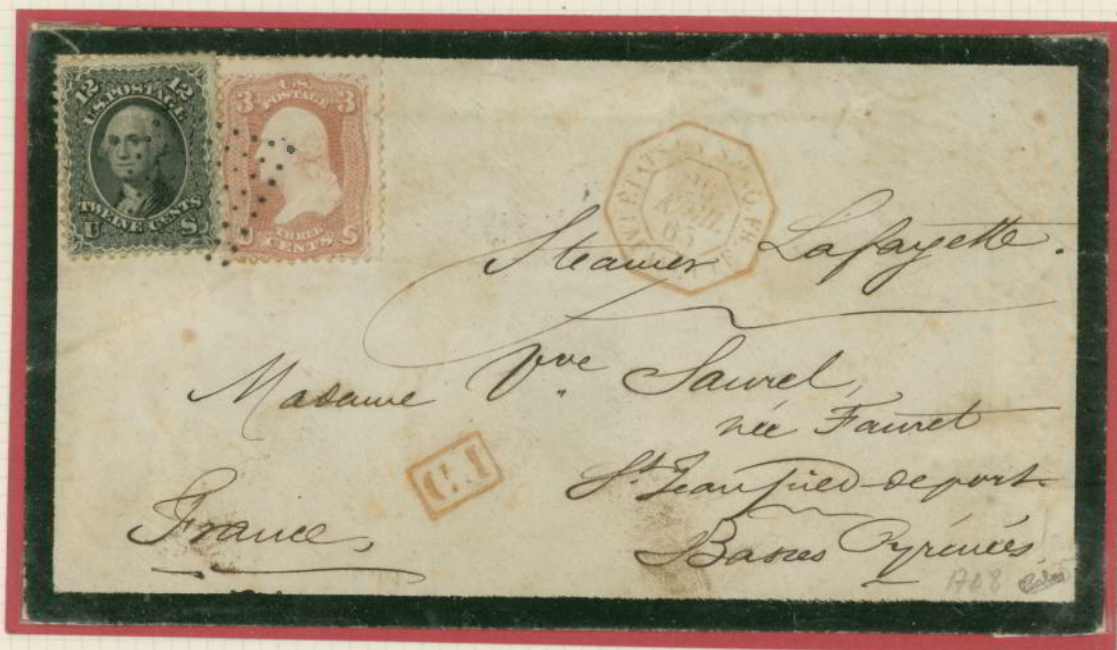 12 12
U.S. POSTAGE
TWELVE CENTS
U S
3 3
U.S.
POSTAGE
THREE
CENTS
U S
AVRIL
65
Steamer Lafayette.
Madame Vve Saurel
née Fauret
St Jean pied-de-port
Basses Pyrénées
France,
P.D.
1708